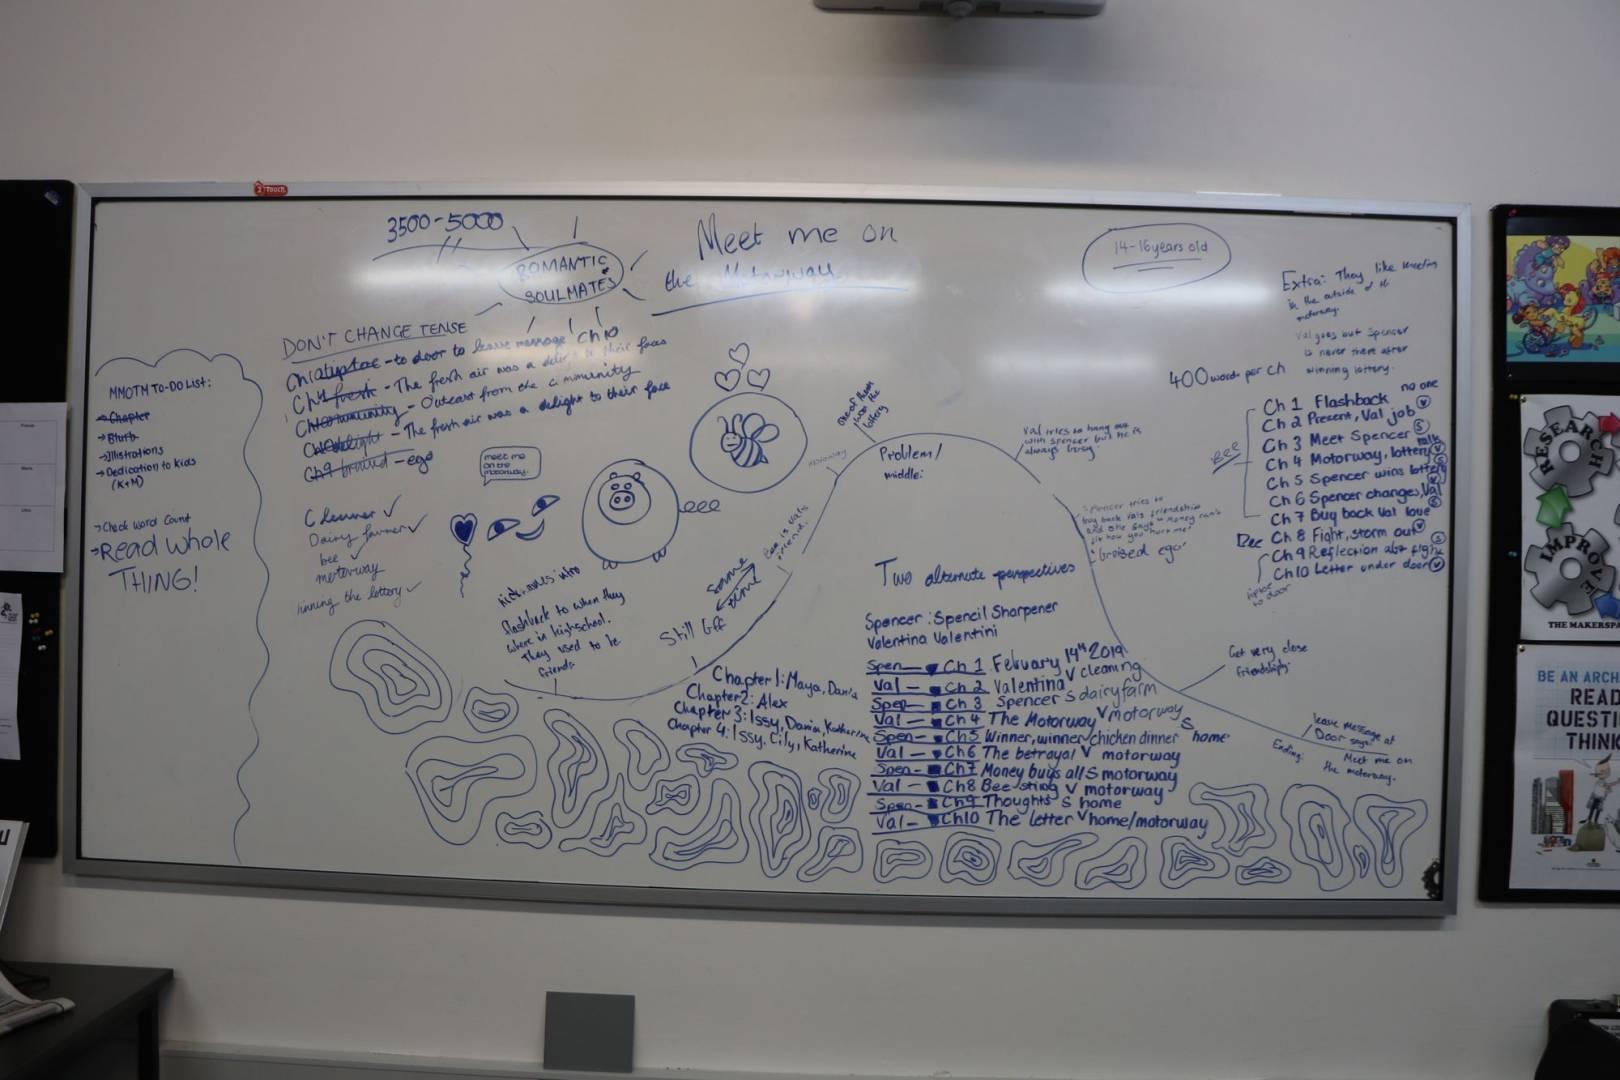 3500-5000
ROMANTIC
SOULMATES
Meet me on
the Motorway
14-16 years old
Extra: They like meeting
in the outside of the
motorway.
Val goes but Spencer
is never there after
winning lottery.
400 words per ch
DON'T CHANGE TENSE
- to door to leave message Ch10
- The fresh air was a delight to their faces
- Outcast from the community
- The fresh air was a delight to their face
Ch9 bruised - ego
MMOTM TO-DO LIST:
→ Chapter
→ Blurb
→ Illistrations
→ Dedication to kids
(K+M)
→ Check word count
→ Read whole
THING!
Dairy farmer ✓
bee ✓
motorway
winning the lottery ✓
meet me
on the
motorway.
nicknames intro
flashback to when they
where in highschool.
They used to be
friends
Still bff
Some
time
Bee is Vals
friend.
motorway
one of them
won the
lottery
Problem/
middle:
Val tries to hang out
with spencer but he is
always busy.
Spencer tries to
buy back vals friendship
and she says "money can't
fix how you hurt me"
bruised ego
Get very close
friendship
leave message at
Door says:
Meet me on
the motorway.
Ending:
Bee
no one
Ch 1 Flashback
Ch 2 Present, Val job V
Ch 3 Meet Spencer S
Ch 4 Motorway, lottery talk V
Ch 5 Spencer wins lottery S
Ch 6 Spencer changes, Val V
Ch 7 Buy back Val love S
Ch 8 Fight, storm out V
Ch 9 Reflection abt fight S
Ch10 Letter under door V
to door
Two alternate perspectives
Spencer: Spencil Sharpener
Valentina Valentini
Spen — Ch 1 Febuary 14th 2019
Val — Ch 2 Valentina V cleaning
Spen — Ch 3 Spencer S dairy farm
Val — Ch 4 The Motorway V motorway
Spen — Ch5 Winner, winner chicken dinner S home
Val — Ch6 The betrayal V motorway
Spen — Ch7 Money buys all S motorway
Val — Ch8 Bee sting V motorway
Spen — Ch9 Thoughts S home
Val — Ch10 The letter V home/motorway
Chapter 1: Maya, Dania
Chapter 2: Alex
Chapter 3: Issy, Dania, Katherine
Chapter 4: Issy, Lily, Katherine
RESEARCH
IMPROVE
THE MAKERSPA
BE AN ARCH
READ
QUESTI
THINK